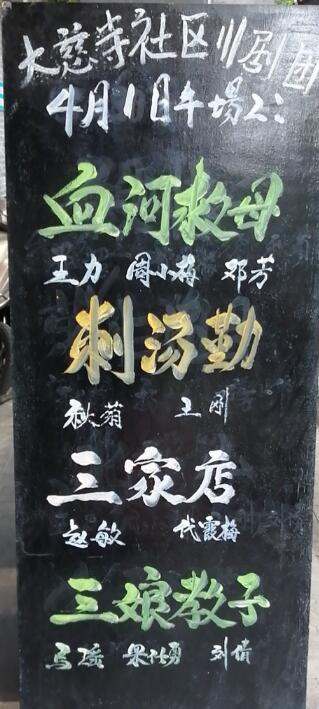 大慈寺社区川剧团
4月1日午場2:
血河救母
王力 周小梅 邓芳
刺汤勤
秋菊 王刚
三家店
赵敏 代霞梅
三娘教子
马瑶 果仕勇 刘倩